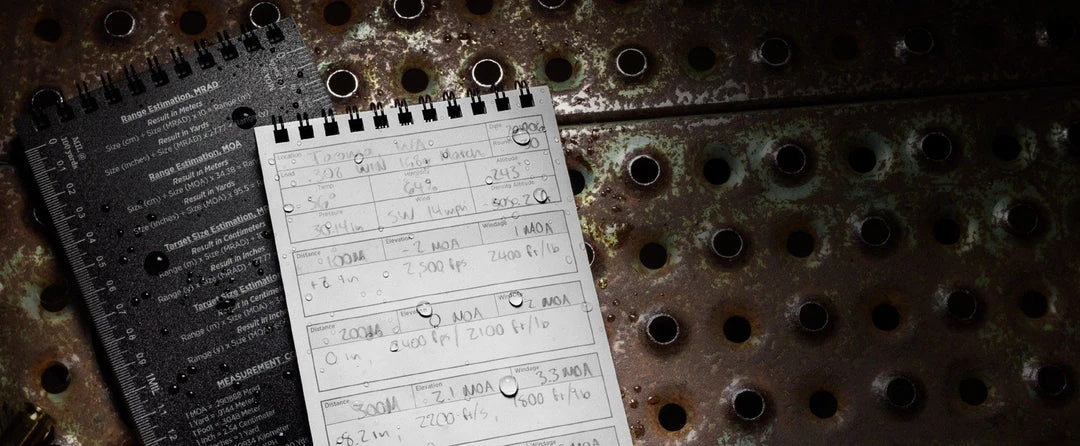 Range Estimation, MRAD
Result in Meters
Size (cm) ÷ Size (MRAD) x 10 = Range (m)
Result in Yards
Size (inches) ÷ Size (MRAD) x 27.7
Range Estimation, MOA
Result in Meters
Size (cm) ÷ Size (MOA) x 34.38
Result in Yards
Size (inches) ÷ Size (MOA) x 95.5
Target Size Estimation, M
Result in Centimeters
Range (m) x Size (MRAD)
Result in Inches
Range (y) x Size (MRAD) ÷ 27.7
Target Size Estimation
Result in Centimeters
Range (m) x Size (MOA)
Result in Inches
Range (y) x Size (MOA)
MEASUREMENT CO
1 MOA = .290888 Mrad
1 Yard = .9144 Meter
1 Foot = .3048 Meter
1 Inch = 2.54 Centimeter
Location
Tacoma WA
Date
Load
308 WIN 168g March
Rounds
Temp
56°
Humidity
64%
Altitude
243'
Pressure
Wind
SW 14 mph
Density Altitude
Distance
100M
Elevation
-2 MOA
Windage
1 MOA
2,500 fps
2400 ft/lb
Distance
200M
Elevation
0 MOA
Windage
2 MOA
0 in, 2400 fps / 2100 ft/lb
Distance
300M
Elevation
2.1 MOA
Windage
3.3 MOA
-8.2 in, 2200 ft/s, 1800 ft/lb
Windage